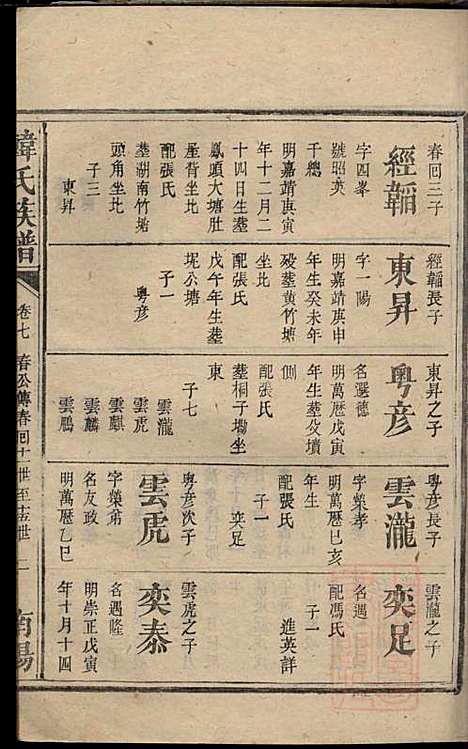 春回三子
經韜
字四峯
號昭英
千總
明嘉靖庚寅
年十二月二
十四日生墓
鳳頭大塘肚
屋背坐北
配張氏
墓湖南竹塘
頭角坐北
子三
東昇
經韜長子
東昇
字一陽
明嘉靖庚申
年生癸未年
殁墓黄竹塘
坐北
配張氏
戊午年生墓
坭公塘
子一
粵彥
東昇之子
粵彥
名選德
明萬曆戊寅
年生墓父墳
側
配張氏
墓桐子坳坐
東
子七
雲瀧
雲虎
雲麒
雲麟
雲鵬
粵彥長子
雲瀧
字榮孝
明萬曆巳亥
年生
配張氏
子一
奕足
粵彥次子
雲虎
字榮甯
名友政
明萬曆乙巳
雲瀧之子
奕足
名遇
配馮氏
子一
進英詳
雲虎之子
奕泰
名遇隆
明崇正戊寅
年十月十四
韓氏族譜
卷七
春公傳春回十世至吉世
一
南陽